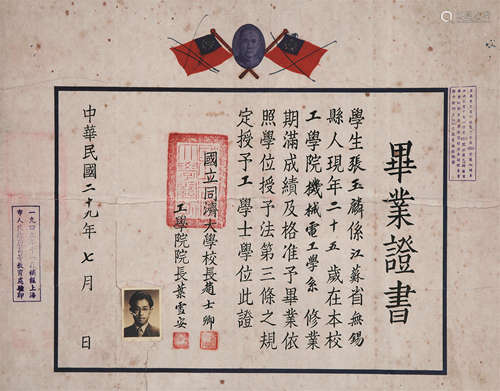 畢業證書
學生張玉麟係江蘇省無錫
縣人現年二十五歲在本校
工學院機械電工學系修業
期滿成績及格准予畢業依
照學位授予法第三條之規
定授予工學士學位此證
國立同濟大學校長趙士卿
工學院院長葉雪安
中華民國二十九年七月 日